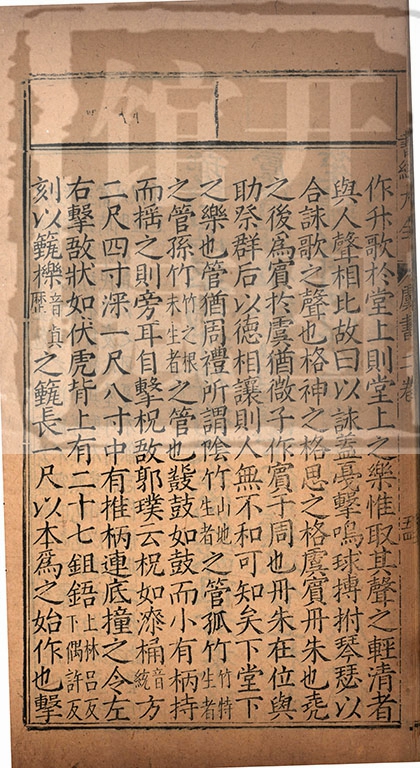 作升歌於堂上則堂上之樂惟取其聲之輕清者
與人聲相比故曰以詠蓋戛擊鳴球搏拊琴瑟以
合詠歌之聲也格神之格思之格虞賓丹朱也堯
之後為賓於虞猶微子作賓于周也丹朱在位與
助祭群后以徳相讓則人無不和可知矣下堂下
之樂也管猶周禮所謂陰竹生山地者之管孤竹竹特生者
之管孫竹竹之根未生者之管也鼗鼓如鼓而小有柄持
而揺之則旁耳自擊柷敔郭璞云柷如漆桶音統方
二尺四寸深一尺八寸中有椎柄連底撞之令左
右擊敔狀如伏虎背上有二十七鉏鋙上林呂反下偶許反
刻以籈櫟音真歷之籈長一尺以木為之始作也擊
虞書一卷